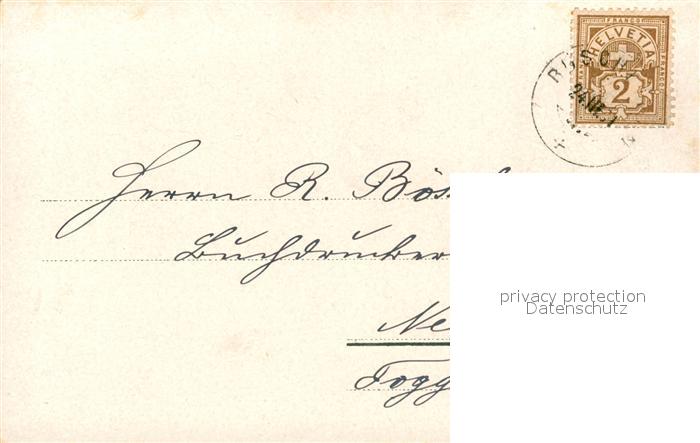 FRANCO
HELVETIA
2
Herrn R. Bös
Buchdrucker
Ne
Togg
privacy protection
Datenschutz